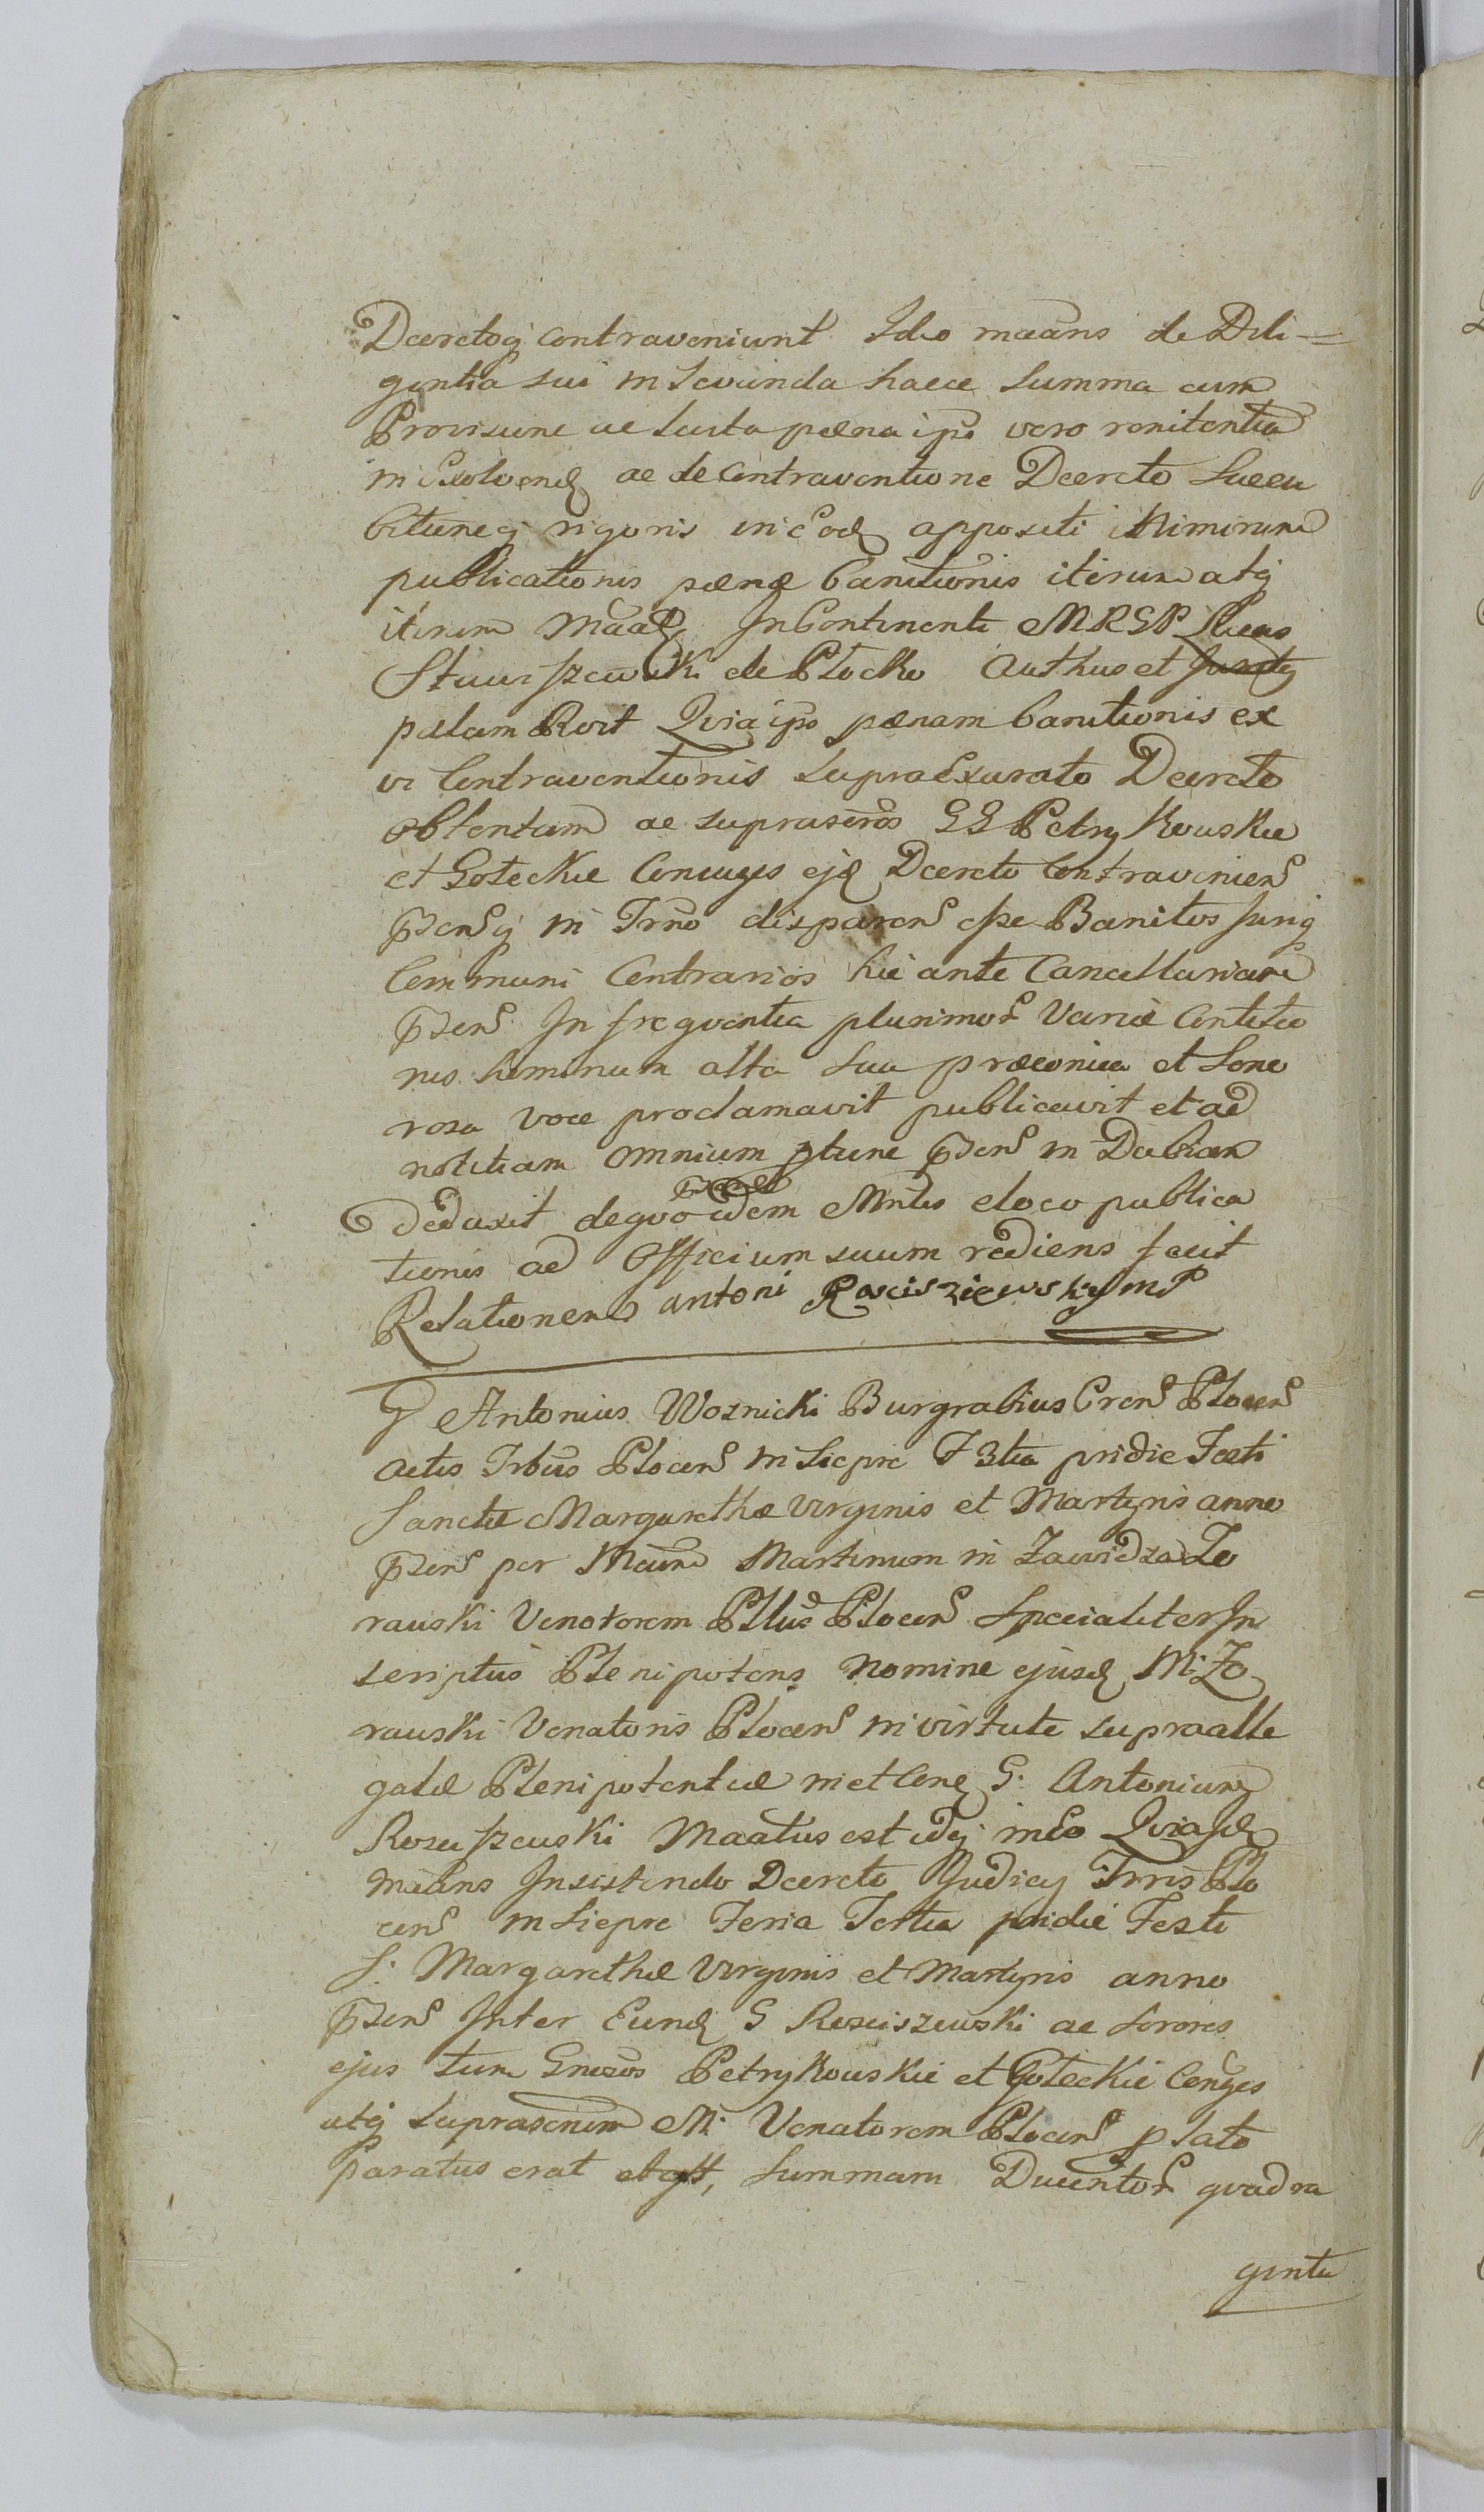 Decretoq contraveniunt Ideo maans de Dili=
gentia sui in levanda haece summa cum
Provisione ac lucta pœna ips vero renitentia
in Exolvend ac de Contraventione Decreto Succu
bitioneq rigoris in eod appositi Nimirum
publicationis pœnæ banitionis iterum atq
iterum Maad InContinenti MRGP Lucas
de Plocko Authus et Juratq
palam Rvit Quia ips pœnam banitionis ex
vi Contraventionis supraExarato Decreto
obtentam ac suprascros GG Petrykowskie
et Goteckie Coniuges ejd Decreto Contravenien
pnsenq in Trno disparen esse Banitos Juriq
Communi Contrarios hic ante Cancellariam
pnsen In freqventia plurimor Variæ Conditio
nis hominum alta sua præconica et Sono
rosa voce proclamavit publicavit et ad
notitiam omnium ptunc pnsen in
Deduxit deqvo idem Mntis eloco publica
tionis ad Officium suum rediens fecit
Relationem antoni Rosciszewsky mP
G Antonius Woznicki Burgrabius Cren Plocen
actis Trbus Plocen in Siepre F 3tia pridie Festi
Sanctæ Margarethæ Virginis et Martyris anno
pnsen per Maum Martinum in Zawidza Zo
rawski Venatorem Pllus Plocen Specialiter In
scriptus Plenipotens nomine ejusd M. Zo
rawski Venatoris Plocen in virtute supraalle
gatæ Plenipotentiæ G. Antonium
Rosciszewski Maatus est idq in eo Quia ipse
maans Insistendo Decreto Judicy Trris Plo
cen in Siepre Feria Tertia pridie Festi
S. Margarethæ Virginis et Martyris anno
pnsen Inter Eund G Rosciszewski ac Sorores
ejus tum Gnesos Petrykowskie et Goteckie Conges
atq suprascrium M. Venatorem Plocen plato
paratus erat summam Ducentor qvadra
ginta